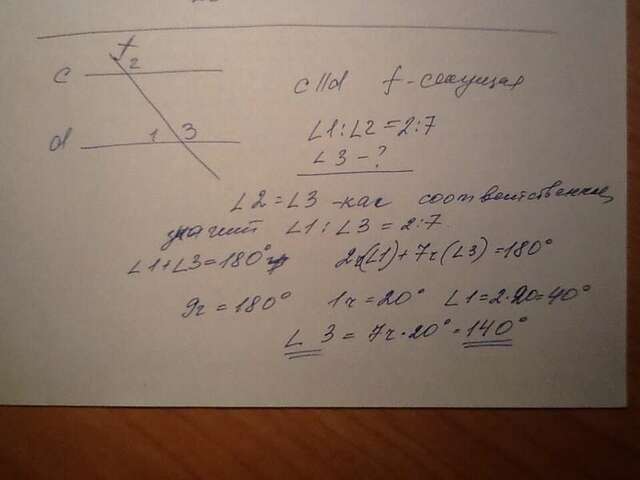 f
2
c
d
1 3
c||d f - секущая
∠1:∠2 = 2:7
∠3 - ?
∠2 = ∠3 - как соответственные,
значит ∠1:∠3 = 2:7.
∠1+∠3=180°
2ч(∠1)+7ч(∠3)=180°
9ч = 180° 1ч = 20° ∠1=2·20=40°
∠3 = 7ч·20° = 140°